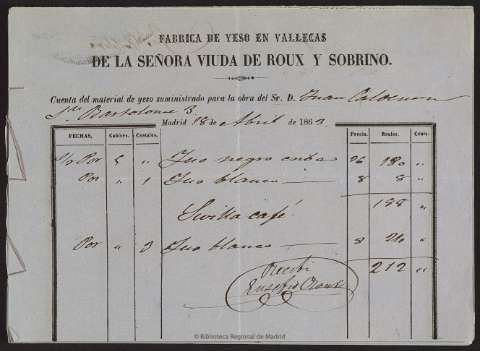 FABRICA DE YESO EN VALLECAS
DE LA SEÑORA VIUDA DE ROUX Y SOBRINO.
Cuenta del material de yeso suministrado para la obra del Sr. D. Juan Calderon
Sn. Bartolomé 3
Madrid 18 de Abril de 1863
FECHAS. Cahices. Costales. Precio. Reales. Cénts.
Por 5 " Yeso negro 36 180 "
Por " 1 Yeso blanco 8 8 "
188 "
Sevilla café
Por " 3 Yeso blanco 8 24 "
Recibi 212 "
Eusebio Roux
© Biblioteca Regional de Madrid